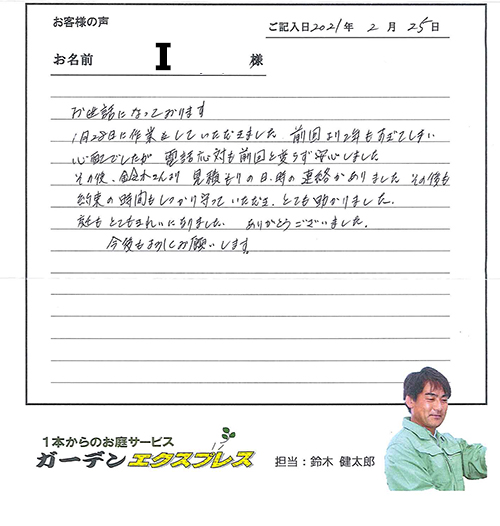 お客様の声
ご記入日2021年 2月 25日
お名前 I 様
お世話になっております
1月28日に作業をしていただきました。前回より2年もあいてしまい
心配でしたが 電話応対も前回と変らず安心しました
その後、鈴木さんより 見積もりの日、時の連絡がありました その後も
約束の時間もしっかり守っていただき、とても助かりました。
庭もとてもきれいになりました ありがとうございました。
今後もよろしくお願いします。
1本からのお庭サービス
ガーデンエクスプレス
担当：鈴木 健太郎